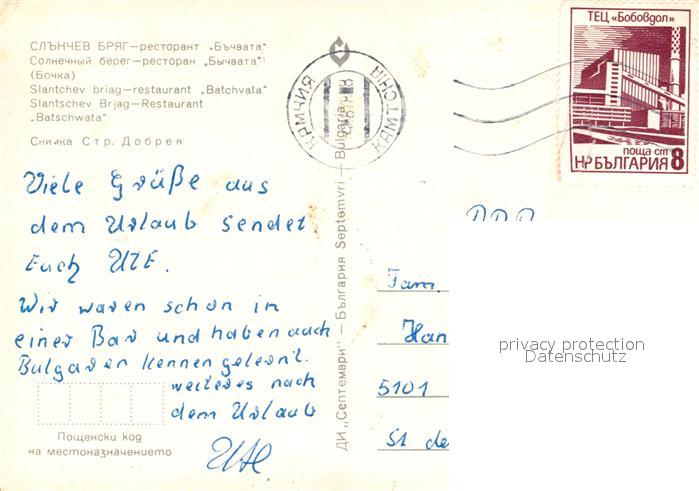 СЛЪНЧЕВ БРЯГ—ресторант „Бъчвата“
Солнечный берег—ресторан „Бычвата“
(Бочка)
Slantchev briag—restaurant „Batchvata“
Slantschev Brjag—Restaurant
„Batschwata“
Снимка Стр. Добрев
Viele Grüße aus
dem Urlaub sendet
Euch UTE.
Wir waren schon in
einer Bar und haben auch
Bulgaren kennen gelernt.
weiteres nach
dem Urlaub
Ute
Пощенски код
на местоназначението
ДИ „Септември“ — България Septemvri — Bulgaria
КАМЧИЯ
ТЕЦ „Бобовдол“
поща ст 8
НР БЪЛГАРИЯ
DDR
Fam.
Han
5101
privacy protection
Datenschutz